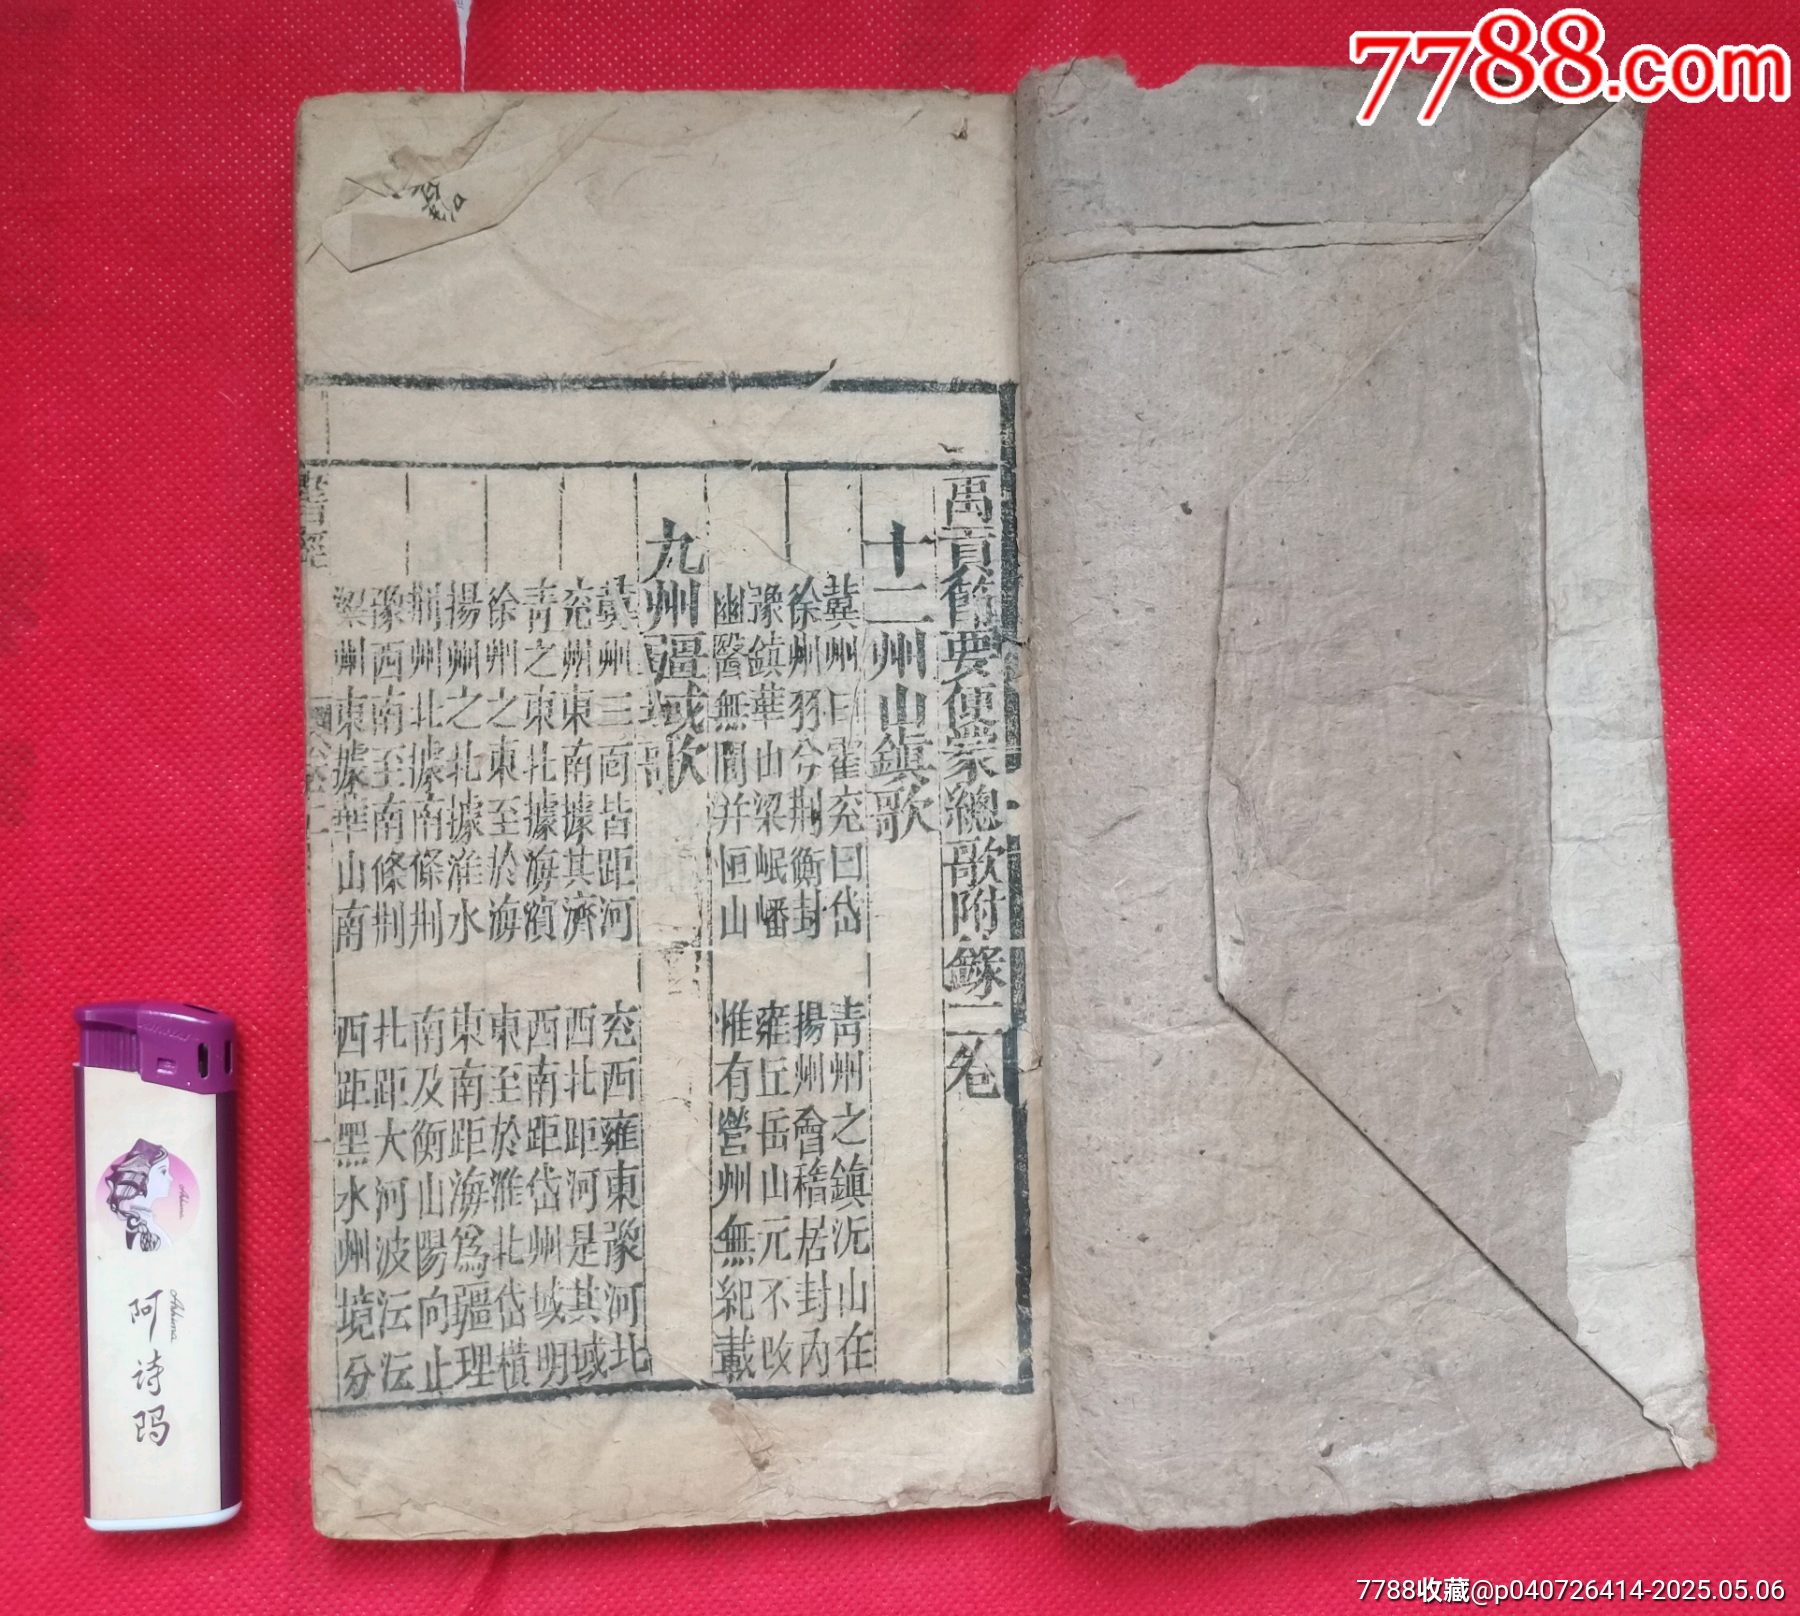 7788.com
禹貢節要便蒙總歌附錄二卷
十二州山鎮歌
冀州曰霍兖曰岱　青州之鎮沂山在
徐州羽兮荆衡封　揚州會稽居封內
豫鎮華山梁岷嶓　雍丘岳山元不改
幽醫無閭并恒山　惟有營州無紀載
九州疆域歌
冀州三面皆距河　兖西雍東豫河北
兖州東南據其濟　西北距河是其域
青之東北據海濵　西南距岱州域明
徐州之東至於海　東至於淮北岱橫
揚州之北據淮水　東南距海爲疆理
荆州北據南條荆　南及衡山陽向止
豫西南至南條荆　北距大河波沄沄
梁州東據華山南　西距黑水州境分
書經
阿诗玛
Ashima
7788收藏@p040726414-2025.05.06